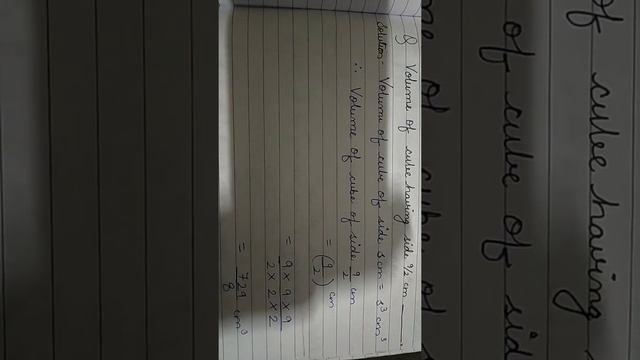 Q Volume of cube having side 9/2 cm ______.
Solution - Volume of cube of side s cm = s³ cm³
∴ Volume of cube of side 9/2 cm
= (9/2) cm
= 9 × 9 × 9 / 2 × 2 × 2
= 729/8 cm³